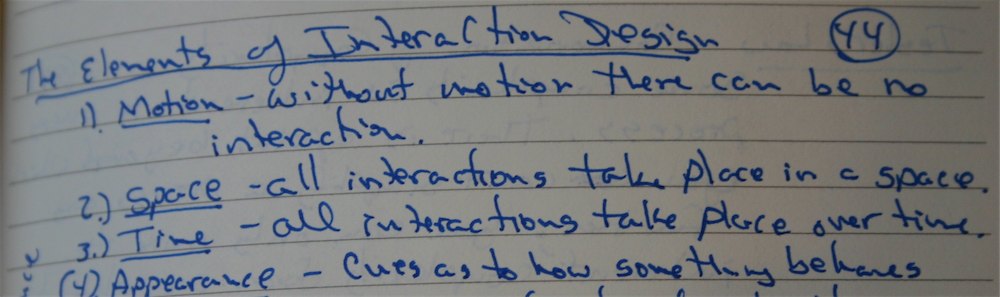 The Elements of Interaction Design 44
1). Motion - without motion there can be no
interaction.
2.) Space - all interactions take place in a space.
3.) Time - all interactions take place over time.
(4) Appearance - Cues as to how something behaves